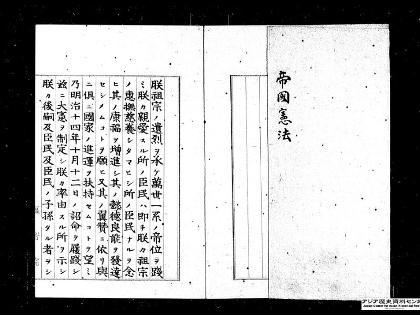 帝國憲法
朕祖宗ノ遺烈ヲ承ケ萬世一系ノ帝位ヲ踐
ミ朕カ親愛スル所ノ臣民ハ即チ朕カ祖宗
ノ惠撫慈養シタマヒシ所ノ臣民ナルヲ念
ヒ其ノ康福ヲ増進シ其ノ懿德良能ヲ發達
セシメムコトヲ願ヒ又其ノ翼贊ニ依リ與
ニ倶ニ國家ノ進運ヲ扶持セムコトヲ望ミ
乃明治十四年十月十二日ノ詔命ヲ履踐シ
玆ニ大憲ヲ制定シ朕カ率由スル所ヲ示シ
朕カ後嗣及臣民及臣民ノ子孫タル者ヲシ
アジア歴史資料センター